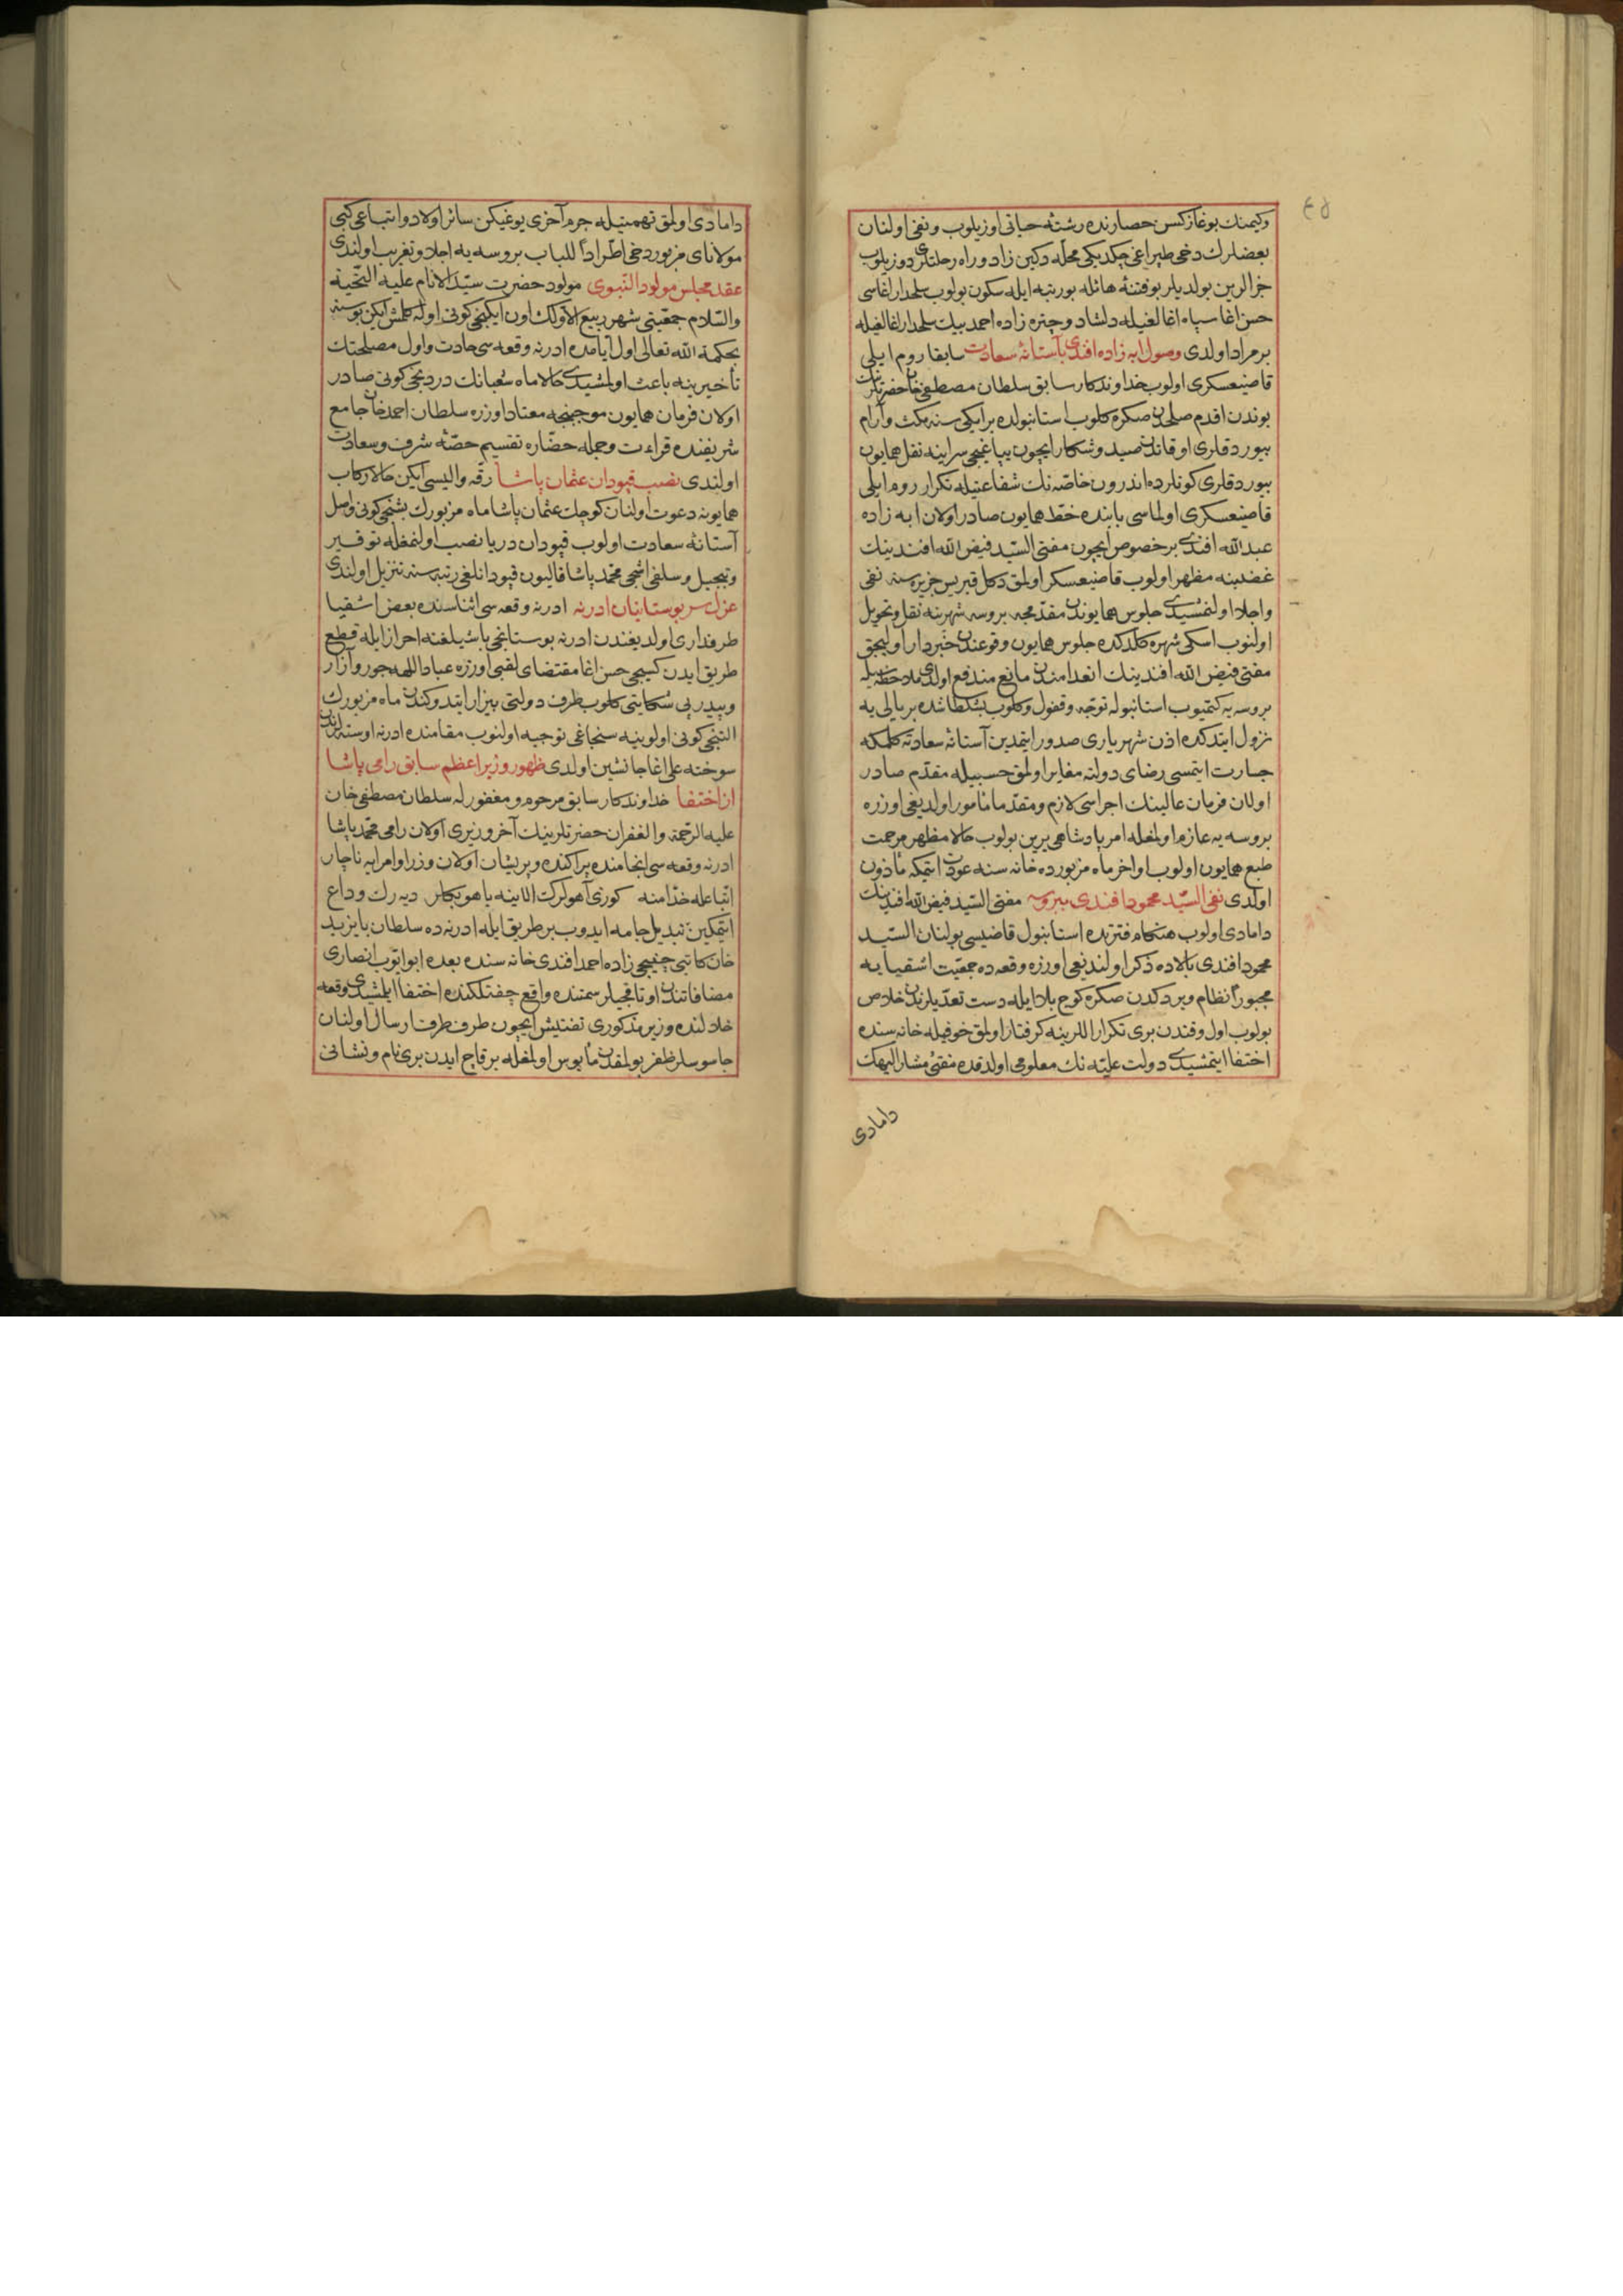 ٤٥
وكيمنك بوغازكسن حصارنده رشتهٔ حياتى اوزيلوب ونفى اولنان
بعضلرك دخى طپراغى چكديكى محلله دكين زاد وراه رحلتلرى دوزيلوب
جزالرين بولديلر بو فتنهٔ هائله بو رتبه ايله سكون بولوب سلحدار اغاسى
حسن اغا سپاه اغالغيله دلشاد وچتره زاده احمد بيك سلحدار اغالغيله
برمراد اولدى وصول ابه زاده افندى بآستانهٔ سعادت سابقا روم ايلى
قاضيعسكرى اولوب خداوندكار سابق سلطان مصطفى خان حضرتلرينك
بوندن اقدم صلحدن صكره كلوب استانبولده بر ايكى سنه مكث وآرام
بيوردقلرى اوقاتده صيد وشكار ايچون يپاغجى سراينه نقل همايون
بيوردقلرى كونلرده اندرون خاصه نك شفاعتيله تكرار روم ايلى
قاضيعسكرى اولماسى بابنده خط همايون صادر اولان ابه زاده
عبد الله افندى بر خصوص ايچون مفتى السيد فيض الله افندينك
غضبنه مظهر اولوب قاضيعسكر اولمق دكل قبريس جزيره سنه نفى
واجلا اولنمشيدى جلوس همايوندن مقدمجه بروسه شهرينه نقل وتحويل
اولنوب اسكى شهره كلدكده جلوس همايون وقوعندن خبردار اوليجق
مفتى فيض الله افندينك انعدامندن مانع مندفع اولدى ملاحظه سيله
بروسه يه كتميوب استانبوله توجه وقفول وكلوب بشكطاشده بر يالى يه
نزول ايتدكده اذن شهريارى صدور ايتمدين آستانهٔ سعادته كلمكه
جسارت ايتمسى رضاى دولته مغاير اولمق حسبيله مقدم صادر
اولان فرمان عالينك اجراسى لازم ومقدما مأمور اولديغى اوزره
بروسه يه عازم اولمغله امر پادشاهى يرين بولوب حالا مظهر مرحمت
طبع همايون اولوب اواخر ماه مزبورده خانه سنه عودت ايتمكه مأذون
اولدى نفى السيد محمود افندى ببروسه مفتى السيد فيض الله افندينك
دامادى اولوب هنكام فترتده استانبول قاضيسى بولنان السيد
محمود افندى بالاده ذكر اولنديغى اوزره وقعه ده جمعيت اشقيا يه
مجبوراً نظام ويردكدن صكره كوچ بلا ايله دست تعديلرندن خلاص
بولوب اول وقتدن برى تكرار اللرينه كرفتار اولمق خوفيله خانه سنده
اختفا ايتمشيدى دولت عليه نك معلومى اولدقده مفتى مشار اليهك
دامادى
دامادى اولمق تهمتيله جرم آخرى يوغيكن سائر اولاد واتباعى كبى
مولاناى مزبور دخى اطراداً للباب بروسه يه اجلا وتغريب اولندى
عقد مجلس مولود النبوى مولود حضرت سيد الانام عليه التحية
والسلام جمعيتى شهر ربيع الاولك اون ايكنجى كونى اوله كلمش ايكن بو سنه
بحكمة الله تعالى اول ايامده ادرنه وقعه سى حادث واول مصلحتك
تأخيرينه باعث اولمشيدى حالا ماه شعبانك دردنجى كونى صادر
اولان فرمان همايون موجبنجه معتاد اوزره سلطان احمد خان جامع
شريفنده قراءت وجمله حضاره تقسيم حصهٔ شرف وسعادت
اولندى نصب قپودان عثمان پاشا رقه واليسى ايكن حالا ركاب
همايونه دعوت اولنان كوچك عثمان پاشا ماه مزبورك بشنجى كونى واصل
آستانهٔ سعادت اولوب قپودان دريا نصب اولنمغله توقير
وتبجيل وسلفى اشجى محمد پاشا قاليون قپودانلغى رتبه سنه تنزيل اولندى
عزل سر بوستانيان ادرنه ادرنه وقعه سى اثناسنده بعض اشقيا
طرفدارى اولديغندن ادرنه بوستانجى باشيلغنه احراز ايله قطع
طريق ايدن كسيجى حسن اغا مقتضاى لقبى اوزره عباد اللهه جور وآزار
وپيدرپى شكايتى كلوب طرف دولتى بيزار ايتدوكندن ماه مزبورك
التنجى كونى اولوينه سنجاغى توجيه اولنوب مقامنده ادرنه اوسته لرندن
سوخته على اغا جانشين اولدى ظهور وزير اعظم سابق رامى پاشا
از اختفا خداوندكار سابق مرحوم ومغفور له سلطان مصطفى خان
عليه الرحمة والغفران حضرتلرينك آخر وزيرى اولان رامى محمد پاشا
ادرنه وقعه سى انجامنده پراكنده وپريشان اولان وزرا وامرا يه ناچار
اتباعله خدامنه كوزى آهولرك اللرينه ياهو بكلر ديه رك وداع
ايتمكين تبديل جامه ايدوب بر طريق ايله ادرنه ده سلطان بايزيد
خان كاتبى چفيجى زاده احمد افندى خانه سنده بعده ابو ايوب انصارى
مضافاتندن اوتاقجيلر سمتنده واقع چفتلكنده اختفا ايلمشيدى وقعه
خلالنده وزير مذكورى تفتيش ايچون طرف طرف ارسال اولنان
جاسوسلر ظفر بولمقدن مأيوس اولمغله بر قاچ ايدن برى نام ونشانى